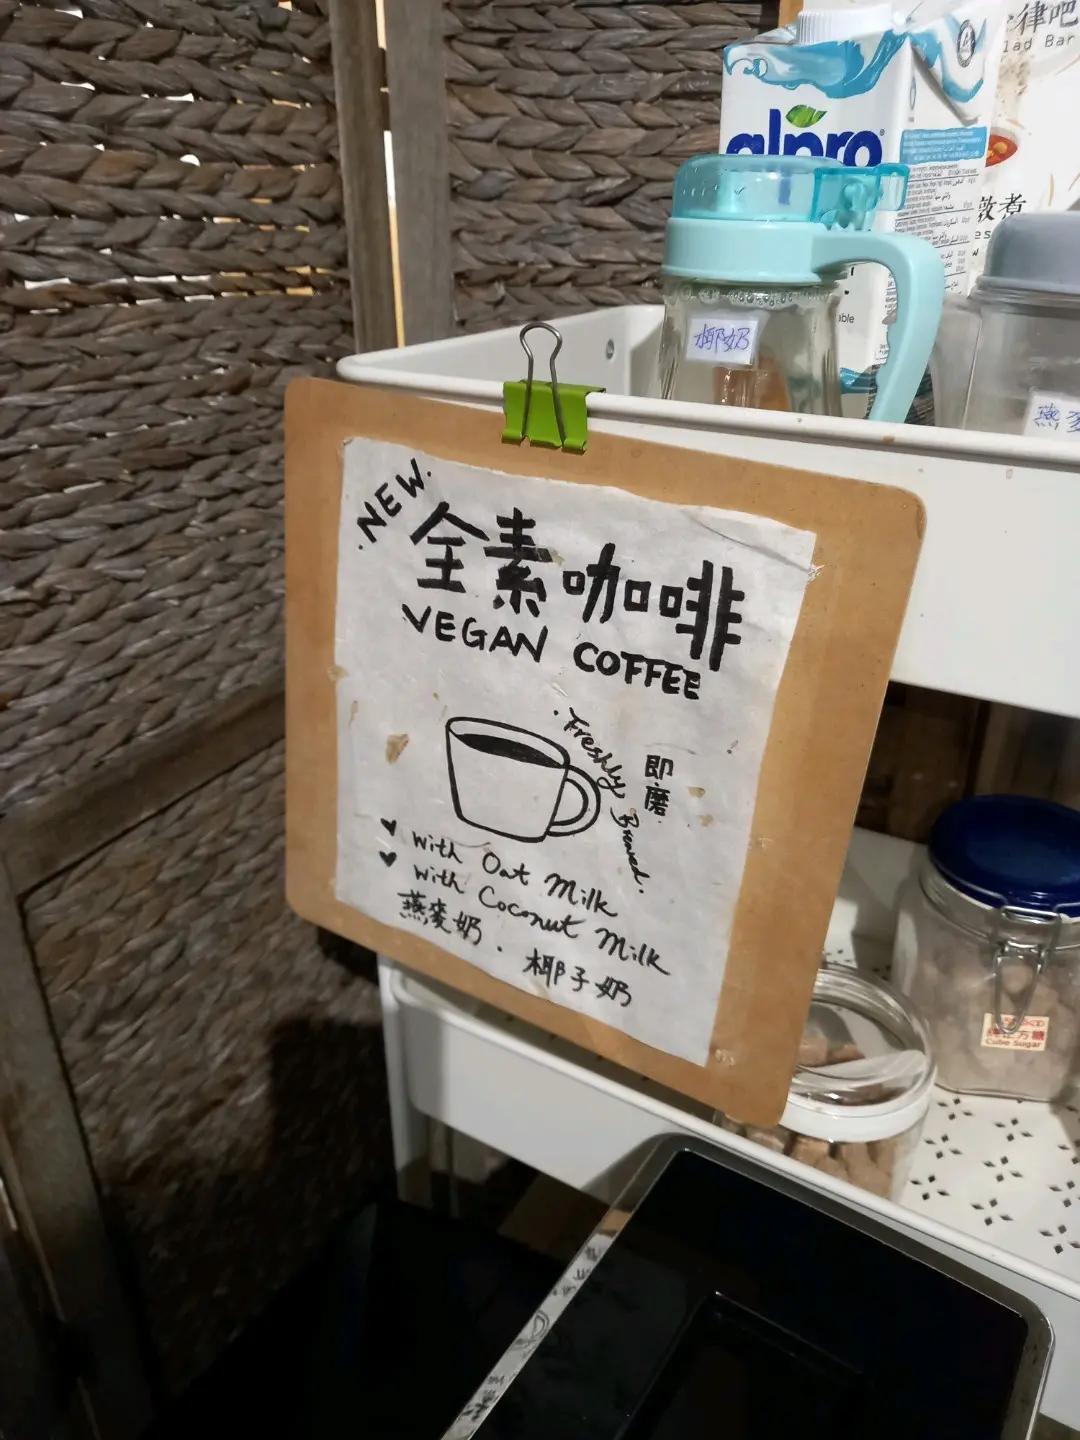 律吧
lad Bar
alpro
煮
椰奶
able
燕麥
·NEW·
全素咖啡
VEGAN COFFEE
·Freshly Brewed·
即磨
♥ With Oat Milk
♥ With Coconut Milk
燕麥奶 · 椰子奶
方糖
Cube Sugar